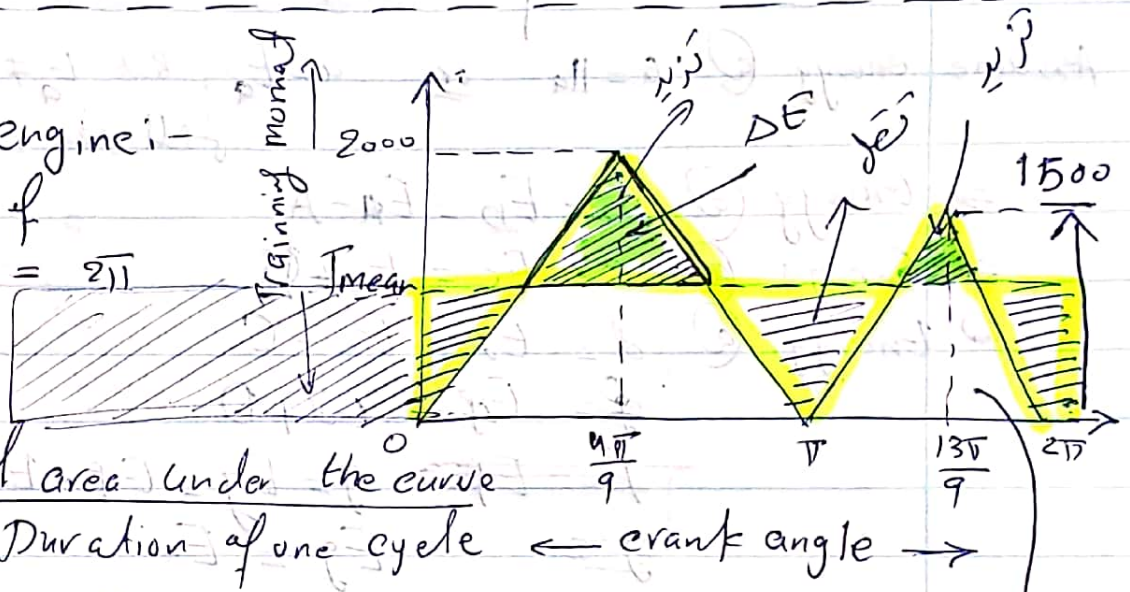 engine:-
f
= 2π
Trainning momat
2000
Tmean
ΔE
1500
0
4π/9
π
13π/9
2π
area under the curve
Duration of one cycle ← crank angle →